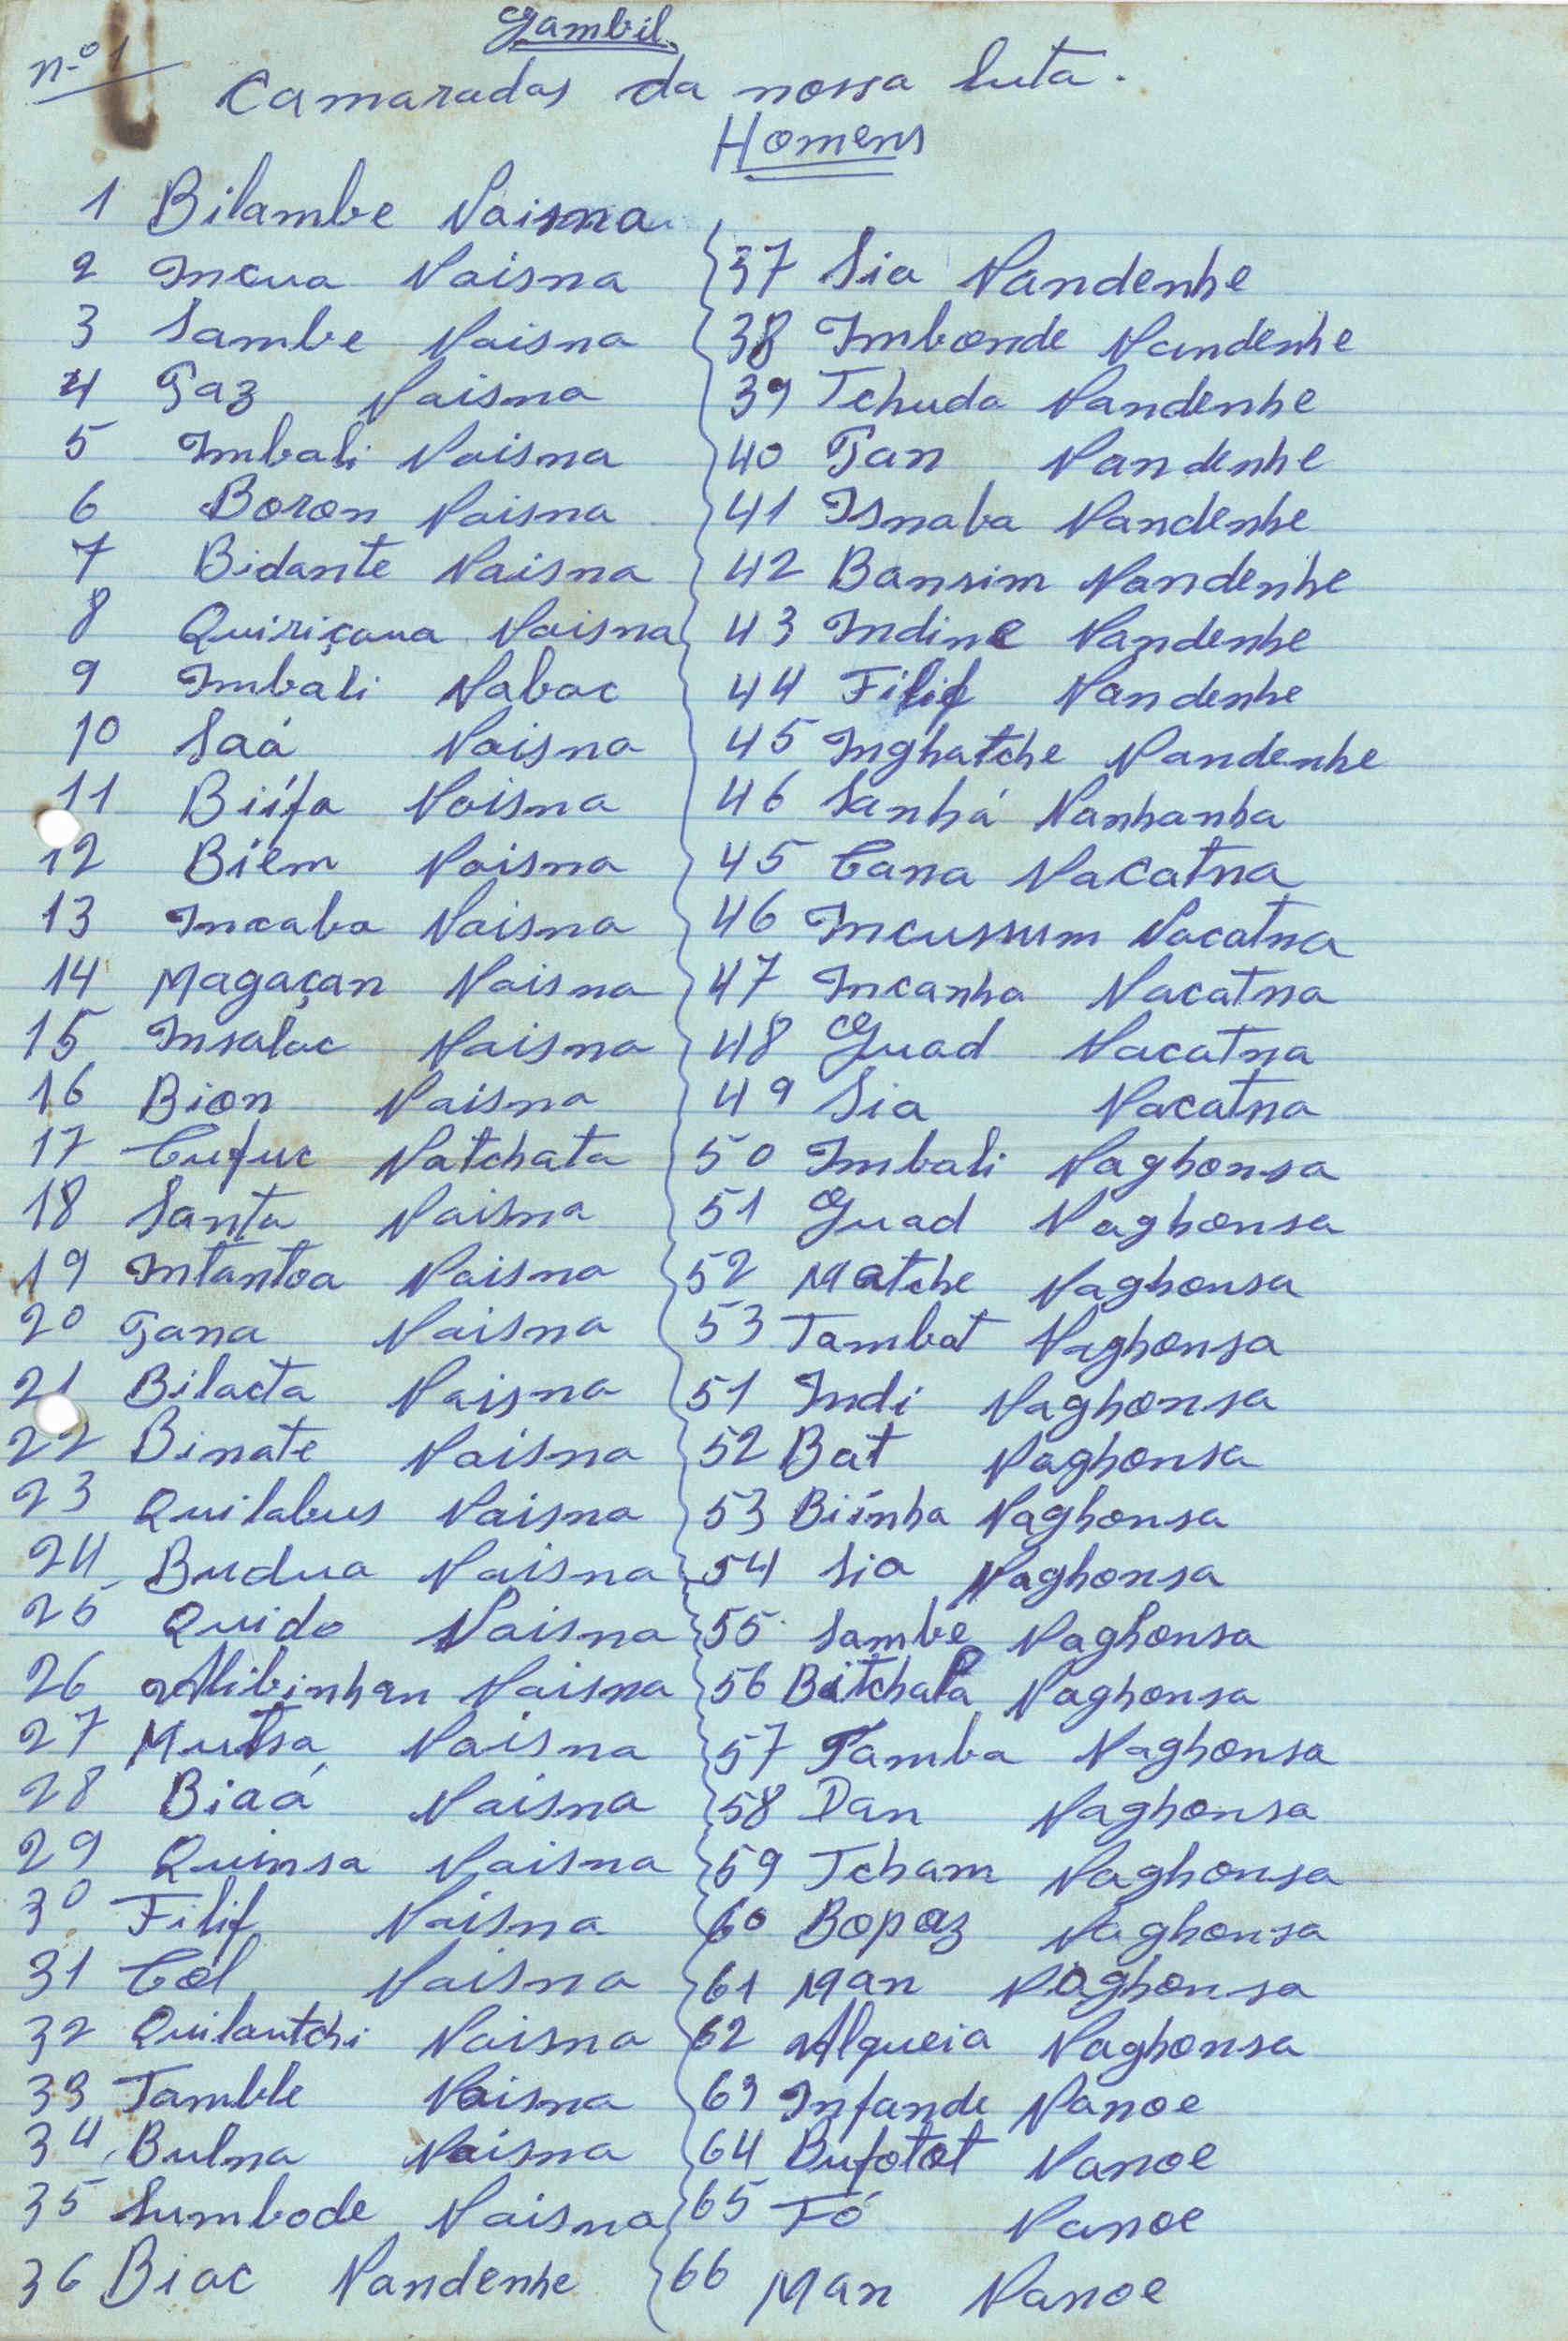 Gambil
n.º 1
Camaradas da nossa luta.
Homens
1 Bilambe Naisna
2 Incua Naisna
3 Sambe Naisna
4 Taz Naisna
5 Imbali Naisna
6 Boron Naisna
7 Bidante Naisna
8 Quiriçaua Naisna
9 Imbali Nabac
10 Saá Naisna
11 Biífa Naisna
12 Biém Naisna
13 Incaba Naisna
14 Magaçan Naisna
15 Insalac Naisna
16 Bion Naisna
17 Cufuc Natchata
18 Santa Naisna
19 Intantoa Naisna
20 Tana Naisna
21 Bilacta Naisna
22 Binate Naisna
23 Quilabus Naisna
24 Budua Naisna
25 Quido Naisna
26 Alibinhan Naisna
27 Mutsa Naisna
28 Biaá Naisna
29 Quinsa Naisna
30 Filif Naisna
31 Col Naisna
32 Quilautchi Naisna
33 Tamble Naisna
34 Bulna Naisna
35 Sumbode Naisna
36 Biac Nandenhe
37 Sia Nandenhe
38 Imbonde Nandenhe
39 Tchuda Nandenhe
40 Tan Nandenhe
41 Isnaba Nandenhe
42 Bansim Nandenhe
43 Indine Nandenhe
44 Filif Nandenhe
45 Inghatche Nandenhe
46 Sanhá Nanhanha
45 Cana Nacatna
46 Incussum Nacatna
47 Incanha Nacatna
48 Guad Nacatna
49 Sia Nacatna
50 Imbali Naghonsa
51 Guad Naghonsa
52 Matche Naghonsa
53 Tambat Naghonsa
51 Indi Naghonsa
52 Bat Naghonsa
53 Biínha Naghonsa
54 Sia Naghonsa
55 Sambé Naghonsa
56 Bitchala Naghonsa
57 Tamba Naghonsa
58 Dan Naghonsa
59 Tcham Naghonsa
60 Bopaz Naghonsa
61 Man Naghonsa
62 Alqueia Naghonsa
63 Infande Nanoe
64 Bufotot Nanoe
65 Tó Nanoe
66 Man Nanoe